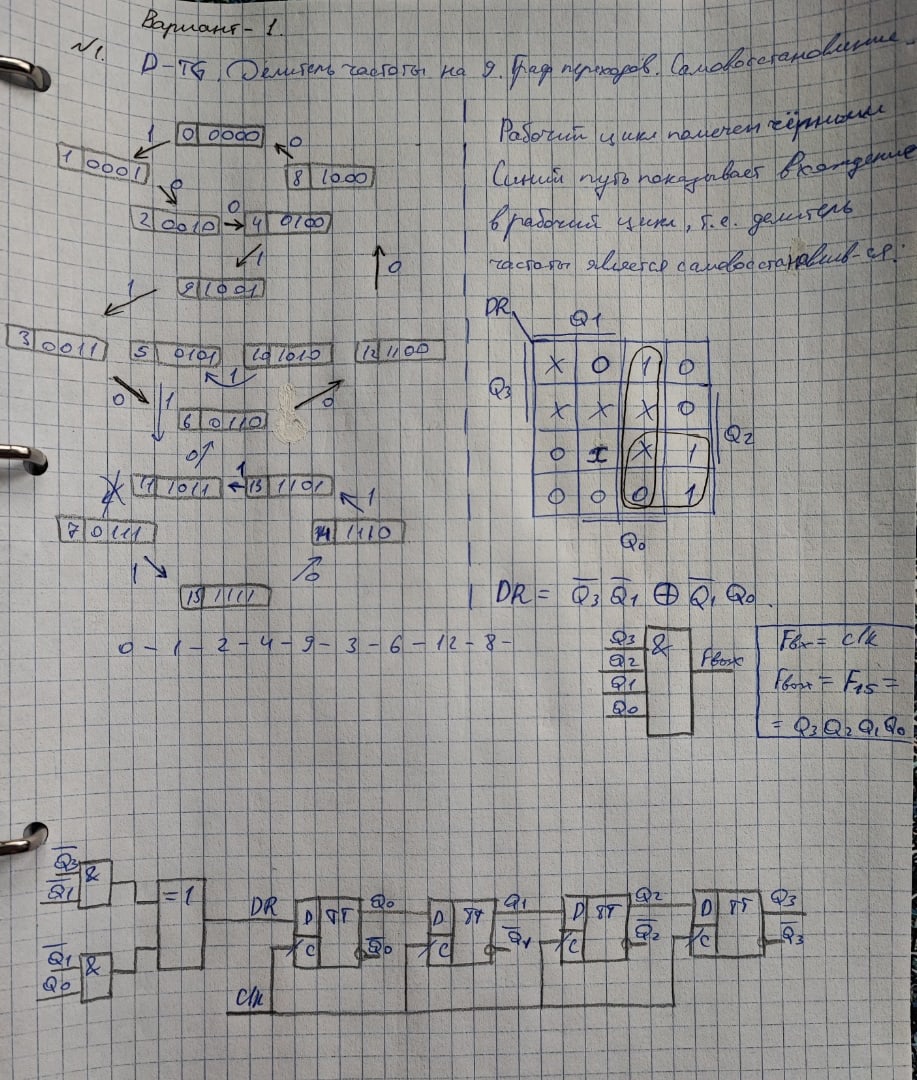 Вариант - 1.
№1. D-ТГ. Делитель частоты на 9. Граф переходов. Самовосстановление.
Рабочий цикл помечен чёрным
Синий путь показывает вхождение
в рабочий цикл, т.е. делитель
частоты является самовосстановив-ся.
1 0 0000 0
1 0001 8 1000
0
2 0010 0 4 0100
1 0
1 9 1001
3 0011 5 0101 10 1010 12 1100
1
0 1 0
6 0110
0
11 1011 1 13 1101
1
7 0111 14 1110
1 0
15 1111
0 - 1 - 2 - 4 - 9 - 3 - 6 - 12 - 8 -
DR Q1
Q3
X 0 1 0
X X X 0
Q2
0 X X 1
0 0 0 1
Q0
DR = Q̅3 Q̅1 ⊕ Q̅1 Q0.
Q3 &
Q2 Fвых
Q1
Q0
Fвх = clk
Fвых = F15 =
= Q3 Q2 Q1 Q0
Q̅3 &
Q̅1
=1 DR
Q̅1 &
Q0
D TT Q0 D TT Q1 D TT Q2 D TT Q3
C Q̅0 C Q̅1 C Q̅2 C Q̅3
Clk